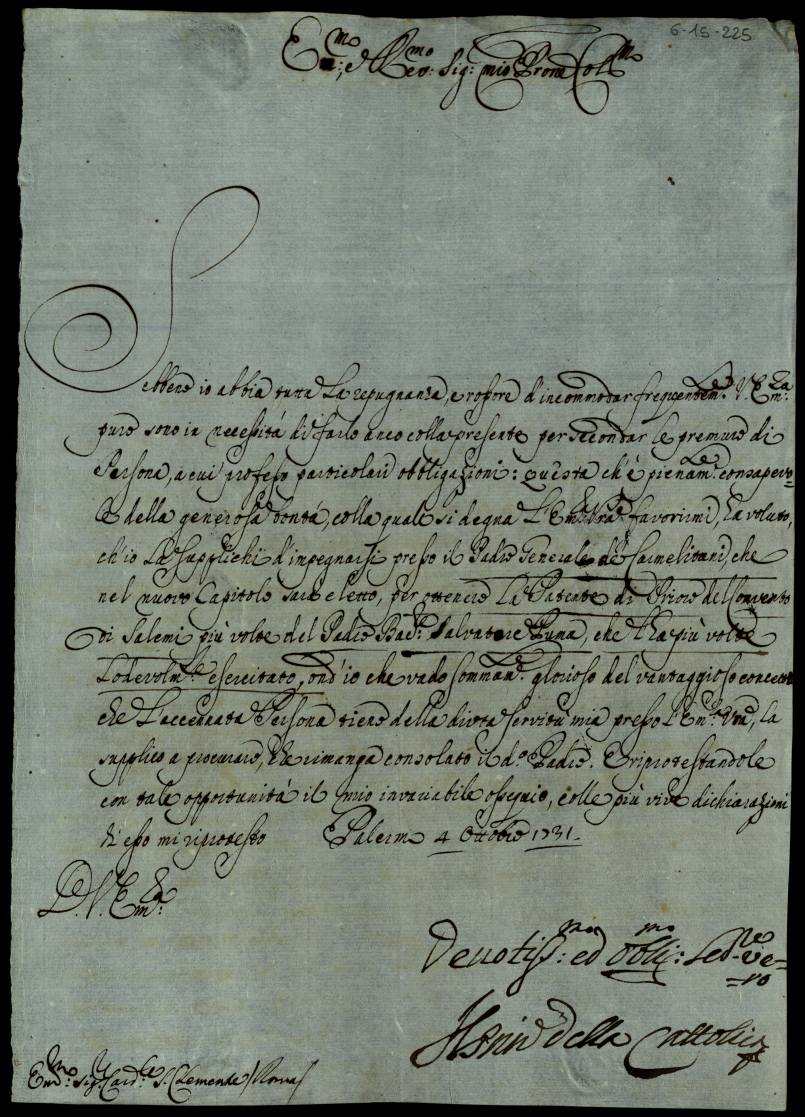 6-15-225
Em:mo, e Rev:mo Sig: mio Prone Col:mo
Sebbene io abbia tutta La repugnanza, e rossore d'incommodar frequentem:te V. Em:za
pure sono in necessitá di farlo anco colla presente per secondar le premure di
Persona, a cui professo particolari obbligazioni: questa ch'è pienam:te consapevo-
le della generosa bontá, colla quale si degna L'Em:a Vra favorirmi, ha voluto,
ch'io La supplichi d'impegnarsi presso il Padre Generale de Carmelitani, che
nel nuovo Capitolo sará eletto, per ottenere La Patente di Priore del Convento
di Salemi più volte del Padre Bac:re Salvatore Puma, che l'ha più volte
Lodevolm:te esercitato, ond'io che vado sommam:te glorioso del vantaggioso concetto
che L'accennata Persona tiene della divota servitù mia presso L'Em:a Vra, la
supplico a procurare, che rimanga consolato il d:o Padre. E riprotestandole
con tale opportunitá il mio invariabile ossequio, colle più vive dichiarazioni
di esso mi riprotesto Palermo 4 Ottobre 1731.
D. V. Em:za
Devotiss:mo ed obbli:mo Sed:re ve=
=ro
Il Prin:e della Cattolica
Em:mo Sig:r Card:le S. Clemente / Roma /